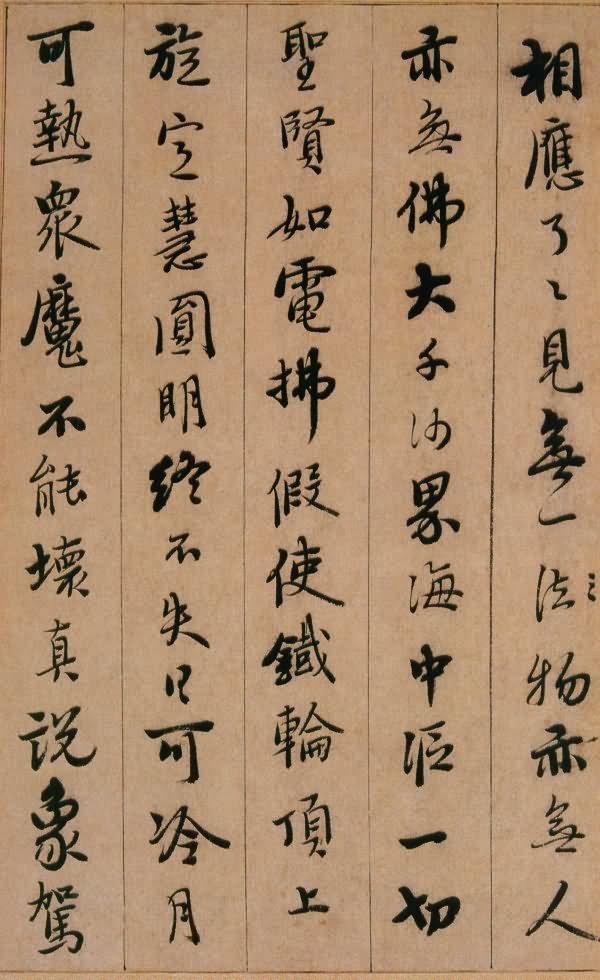 相應了〻見無一法物亦無人
亦無佛大千沙界海中漚一切
聖賢如電拂假使鐵輪頂上
旋定慧圓明終不失日可冷月
可熱眾魔不能壞真説象駕